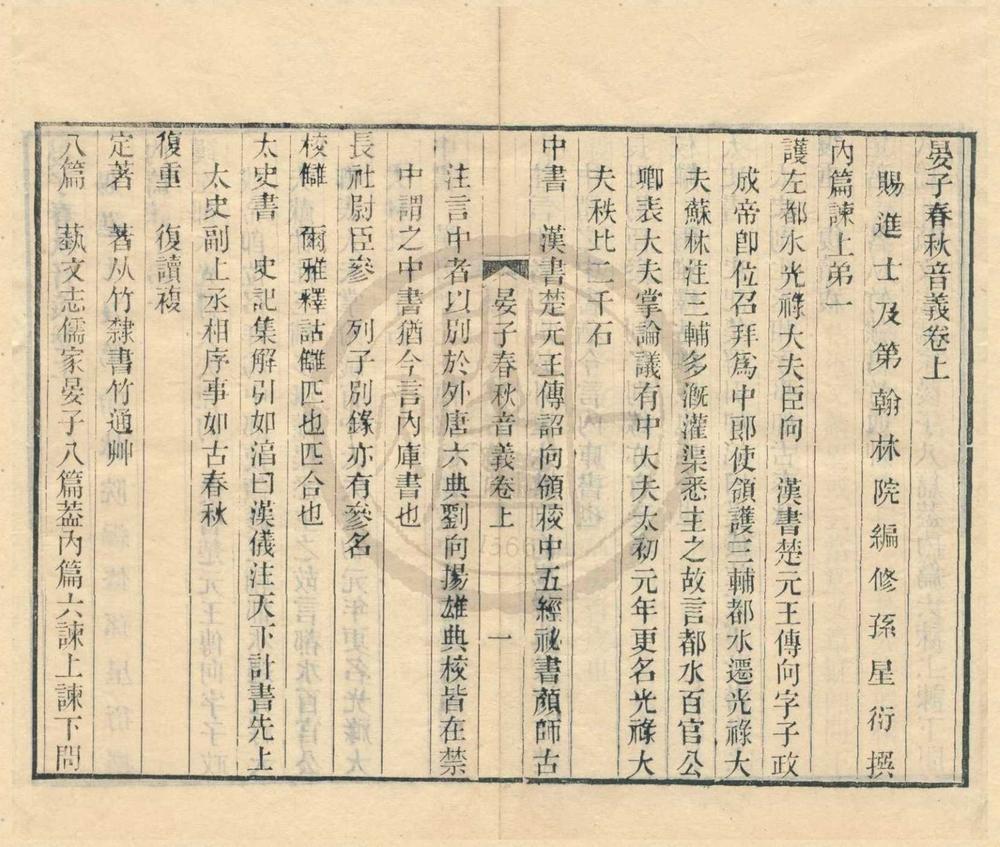 晏子春秋音義卷上
賜進士及第翰林院編修孫星衍撰
內篇諫上弟一
護左都水光祿大夫臣向　漢書楚元王傳向字子政
成帝卽位召拜爲中郎使領護三輔都水遷光祿大
夫蘇林注三輔多漑灌渠悉主之故言都水百官公
卿表大夫掌論議有中大夫太初元年更名光祿大
夫秩比二千石
中書　漢書楚元王傳詔向領校中五經祕書顏師古
晏子春秋音義卷上　一
注言中者以別於外唐六典劉向揚雄典校皆在禁
中謂之中書猶今言內庫書也
長社尉臣參　列子別錄亦有參名
校讎　爾雅釋詁讎匹也匹合也
太史書　史記集解引如湻曰漢儀注天下計書先上
太史副上丞相序事如古春秋
復重　復讀複
定著　著从竹隸書竹通艸
八篇　蓺文志儒家晏子八篇葢內篇六諫上諫下問